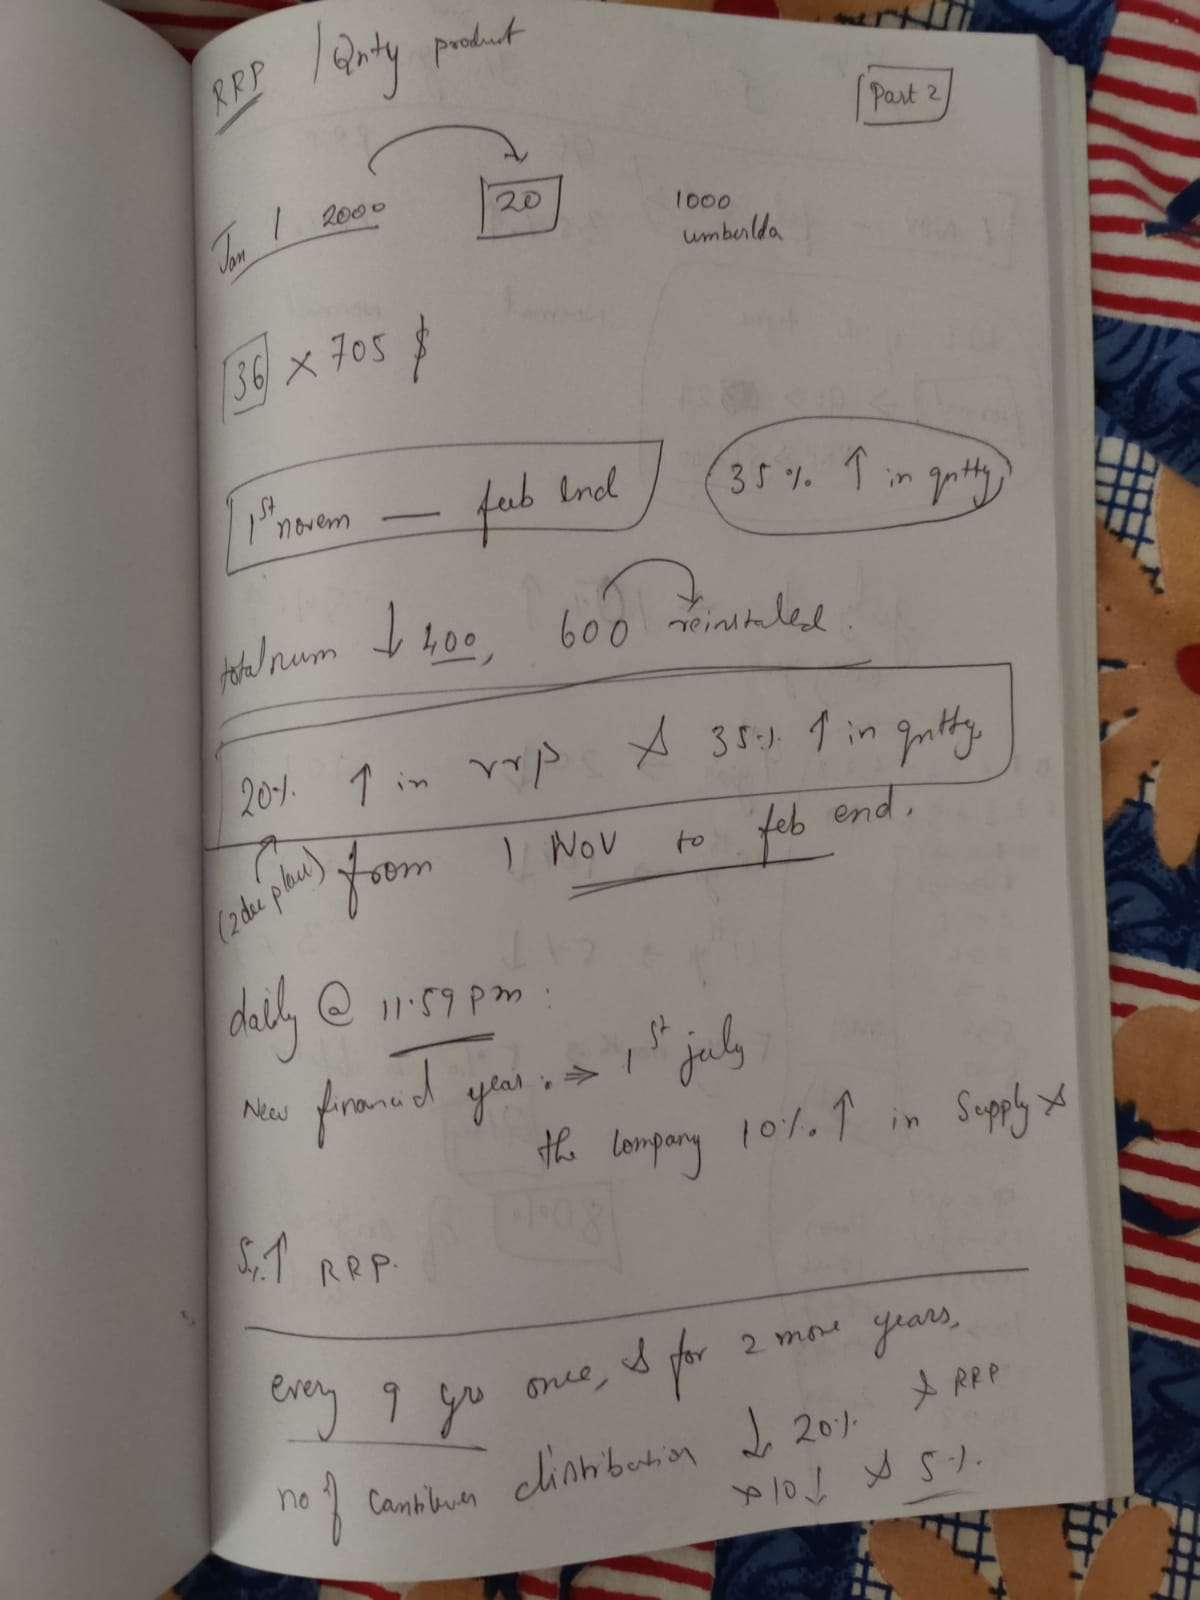 RRP / Qnty product
Part 2
Jan 1 2000 20 1000
umberlda
36 x 705 $
1st novem — feb end 35% ↑ in qntty
total num ↓ 400, 600 reinstaled.
20% ↑ in rrp & 35% ↑ in qntty
(2 dec place) from 1 NOV to feb end.
daily @ 11.59 pm :
New financial year : ⇒ 1st july
the company 10% ↑ in Supply &
5% ↑ RRP.
every 9 yrs once, & for 2 more years,
no of Cantilever distribution ↓ 20% & RRP
↓ 10 & 5%.